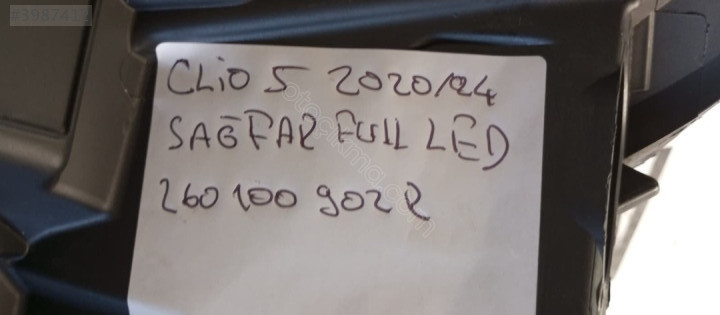 #3987413
CLİO 5 2020/24
SAĞ FAR FULL LED
260 100 902R